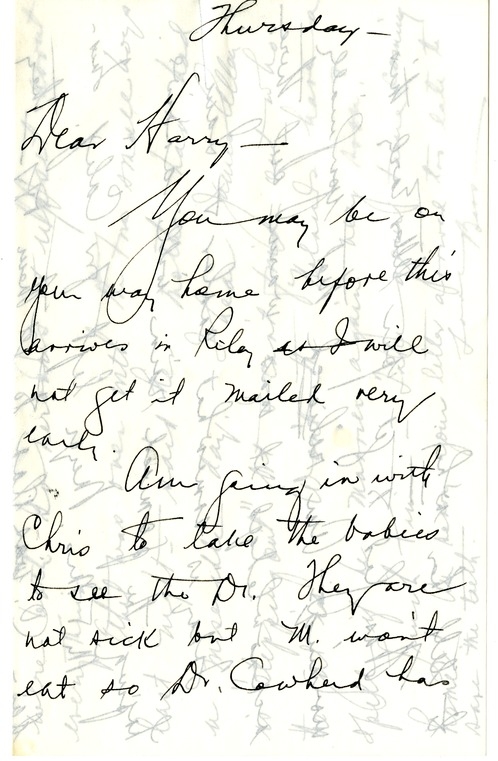 Thursday—
Dear Harry—
You may be on
your way home before this
arrives in Riley as I will
not get it mailed very
early.
Am going in with
Chris to take the babies
to see the Dr. They are
not sick but M. won't
eat so Dr. Cowherd has